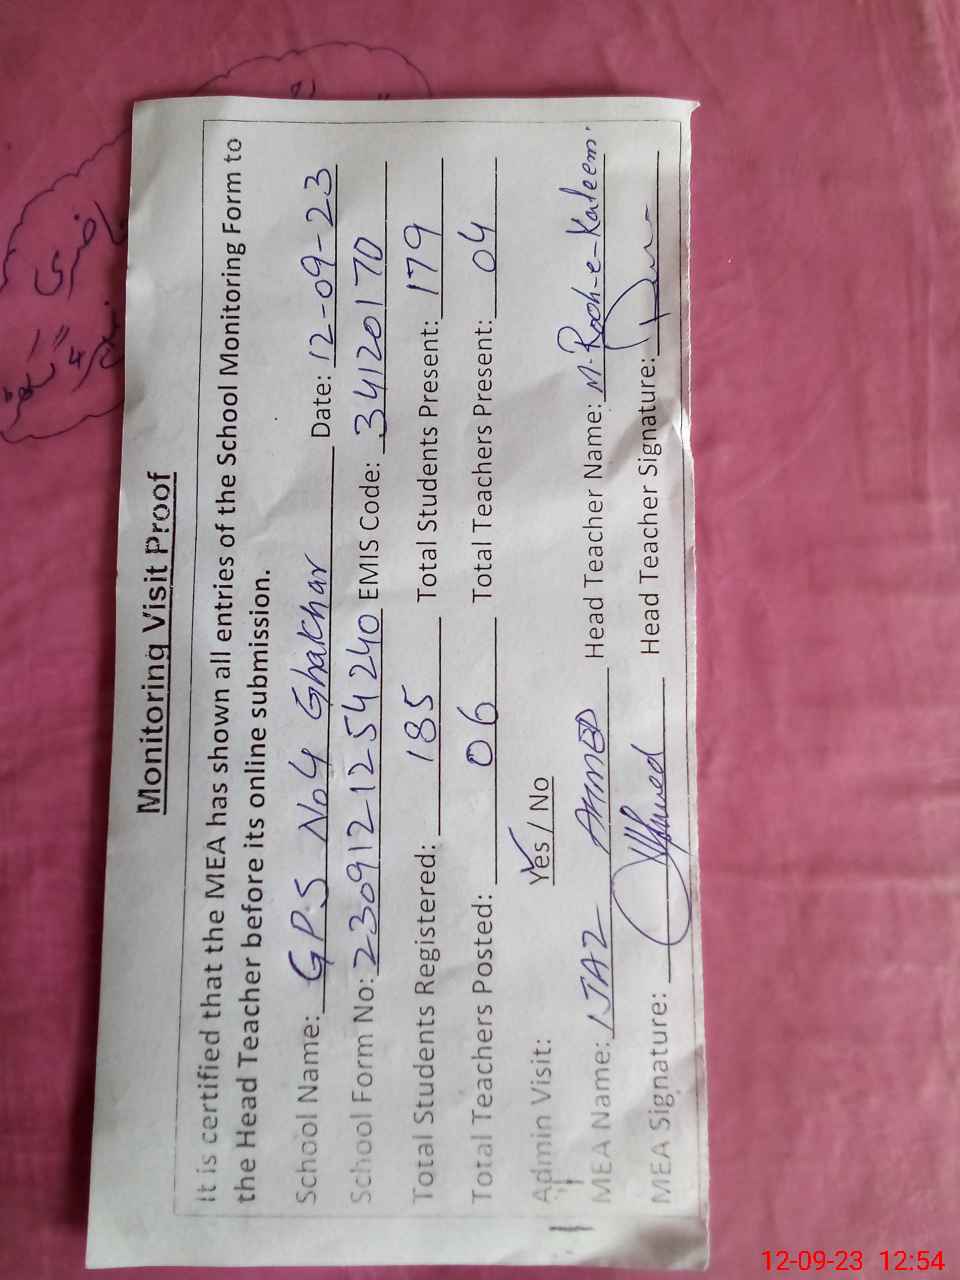 Monitoring Visit Proof
It is certified that the MEA has shown all entries of the School Monitoring Form to
the Head Teacher before its online submission.
School Name: G.P.S No 4 Ghakhar Date: 12-09-23
School Form No: 2309121254240 EMIS Code: 34120170
Total Students Registered: 185 Total Students Present: 179
Total Teachers Posted: 06 Total Teachers Present: 04
Admin Visit: Yes / No
MEA Name: IJAZ AHMED Head Teacher Name: M. Rooh-e-Kaleem.
MEA Signature: Head Teacher Signature:
12-09-23 12:54